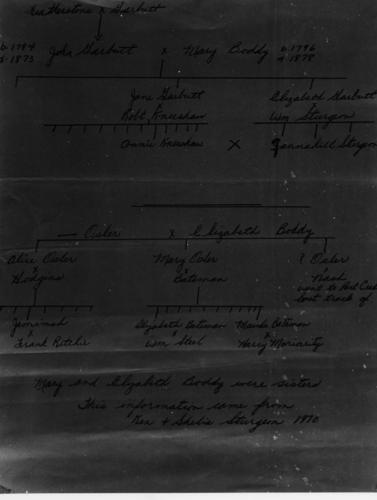 Featherstone x Garbutt
b. 1784 John Garbutt x Mary Boddy b. 1796
d. 1873 d. 1878
Jane Garbutt Elizabeth Garbutt
x x
Robt Kneeshaw Wm Sturgeon
Annie Kneeshaw x Tannahill Sturgeon
— Osler x Elizabeth Boddy
Alice Osler Mary Osler ? Osler
x x x
Hodgins Bateman Nash
went to Port
lost track of
Jemimah Elizabeth Bateman Maude Bateman
x x x
Frank Ritchie Wm Steel Harry Moriarity
Mary and Elizabeth Boddy were sisters
This information came from
Ken + Sheba Sturgeon 1970